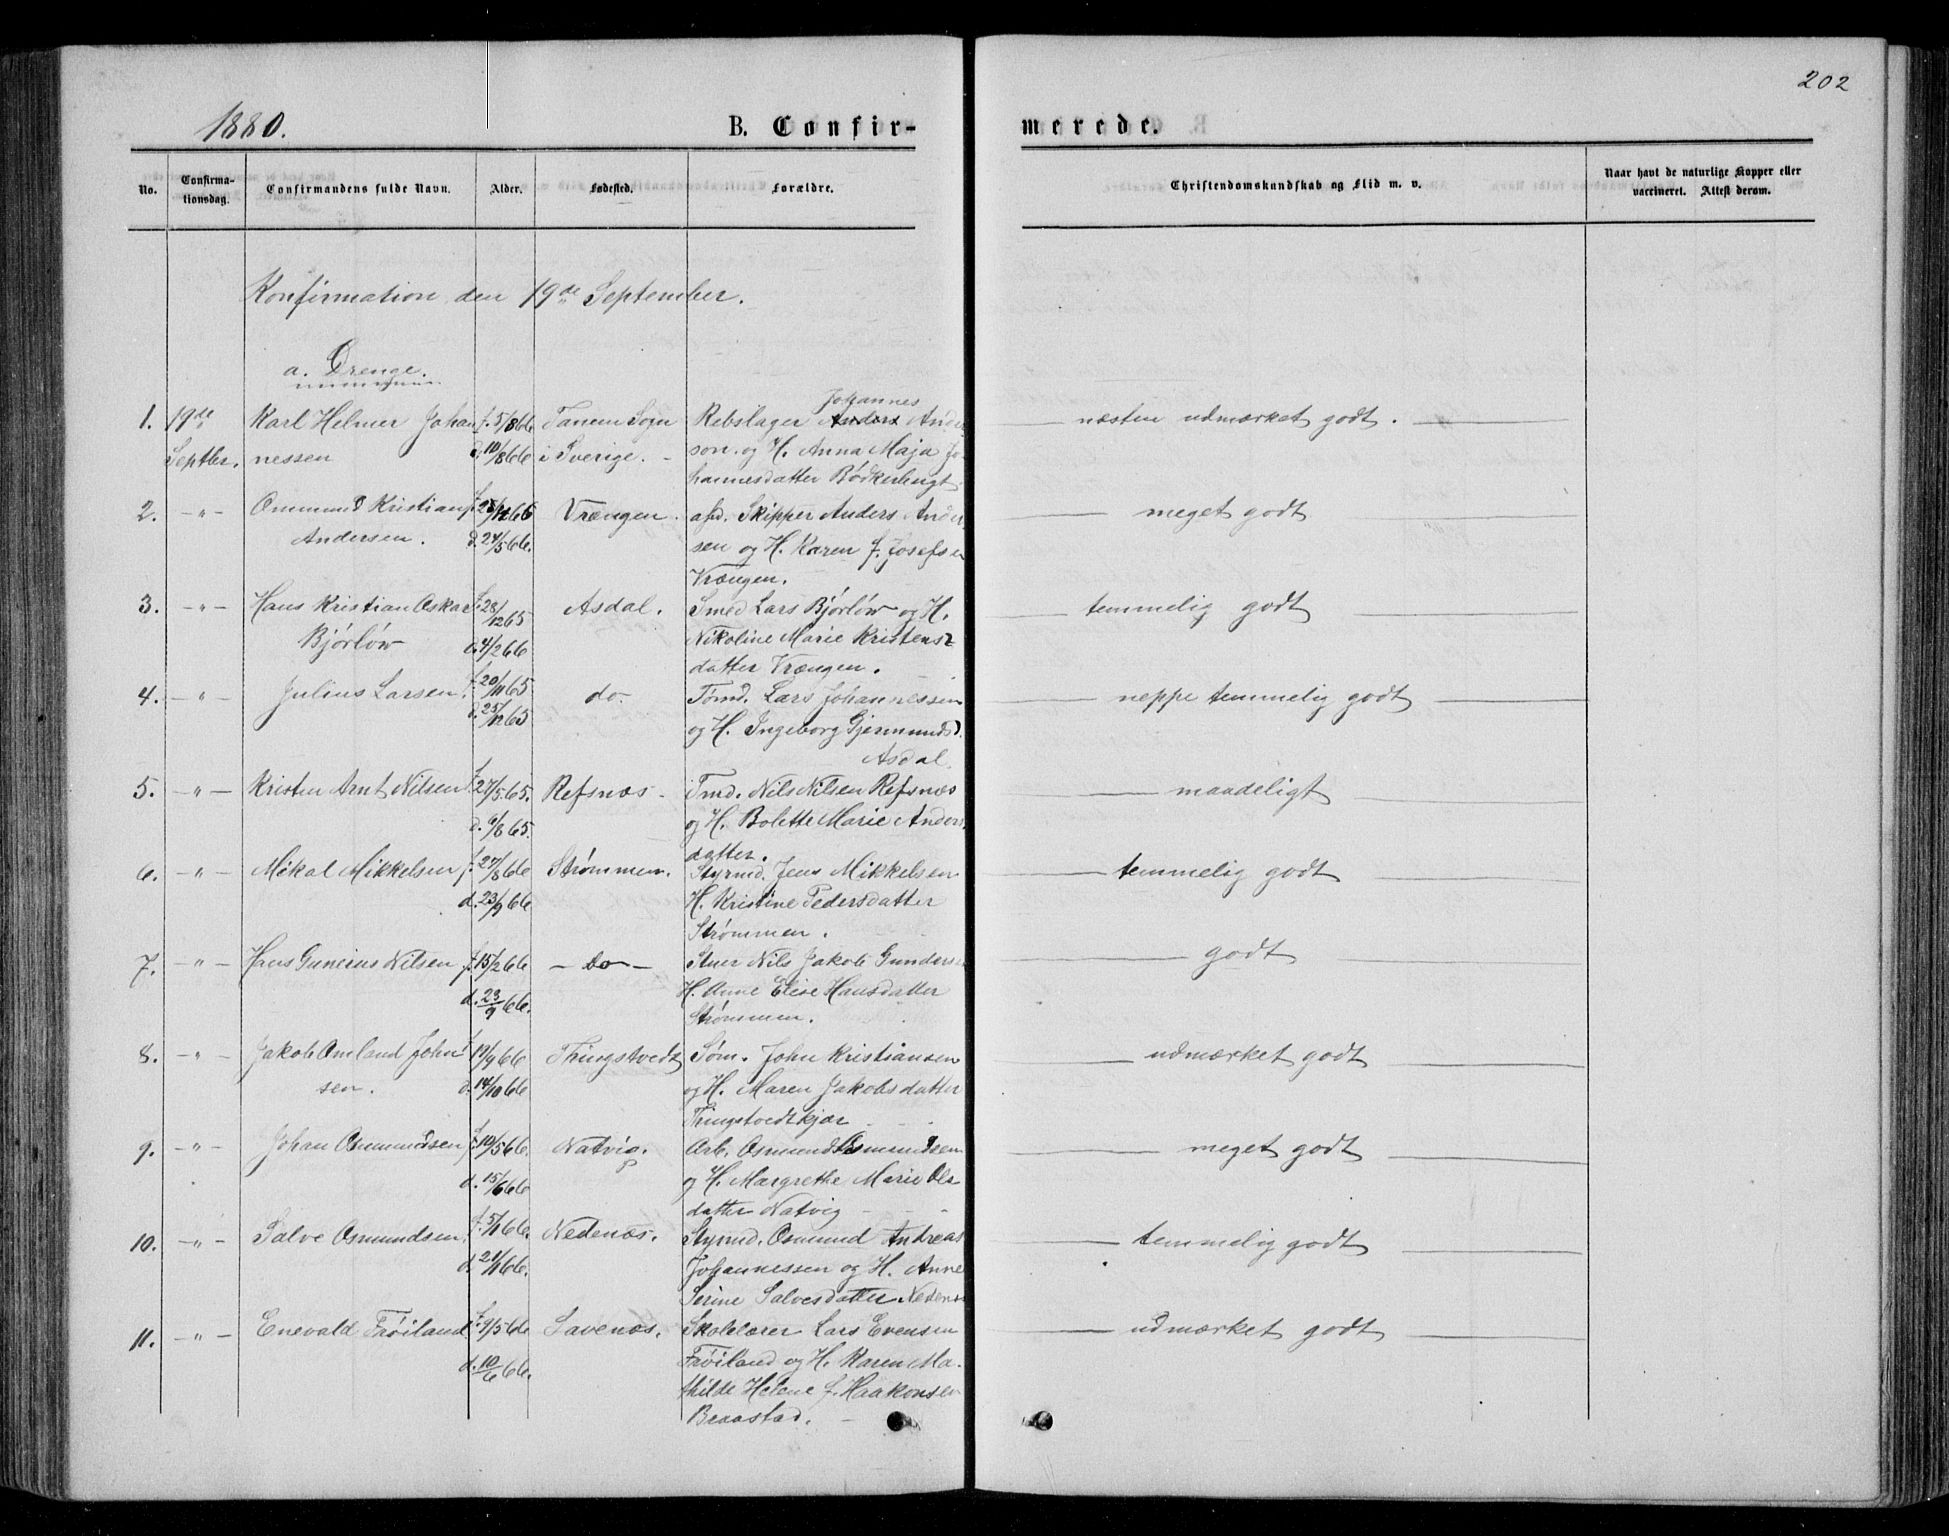 202
1880.
B. Confir-
merede.
No.
Confirma-
tionsdag.
Confirmandens fulde Navn.
Alder.
Fødested.
Forældre.
Christendomskundskab og Flid m. v.
Naar havt de naturlige Kopper eller
vaccineret. Attest derom.
Konfirmation den 19de September.
a. Drenge.
Johannes
1. 19de Karl Helmer Johan f. 5/8 66 Tanem Sogn Rebslager Anders Ander næsten udmærket godt.
Septbr. nessen d. 10/8 66 i Sverige. son og H. Anna Maja Jo
hannesdatter Bødkerbugt
2. -"- Ommund Kristian f. Vrængen. afd. Skipper Anders Ander meget godt
Andersen. d. 24/5 66. sen og H. Karen f. Josefsen
Vrængen.
3. -"- Hans Kristian Oskar f. 28/12 65 Asdal. Smed Lars Bjørløw og H. temmelig godt
Bjørløw d. 4/2 66 Nikoline Marie Kristens
datter Vrængen.
4. -"- Julius Larsen. f. 20/11 65 do Tømd. Lars Johannessen neppe temmelig godt
d. 25/12 65 og H. Ingeborg Gjermundsd.
Asdal.
5. -"- Kristen Arnt Nilsen f. 27/5 65. Refsnæs Tmd. Nils Nilsen Refsnæs maadeligt
d. 6/8 65. og H. Bolette Marie Anders
datter.
6. -"- Mikal Mikkelsen f. 27/8 66 Strømmen. Styrmd. Jens Mikkelsen temmelig godt
d. 23/9 66 H. Kristine Pedersdatter
Strømmen.
7. -"- Hans Gunerius Nilsen f. 15/2 66 - do - Stuer Nils Jakob Gunders godt
d. 23/9 66. H. Anne Elise Hansdatter
Strømmen.
8. -"- Jakob Omland John f. 19/9 66 Thingstvedt Søm. John Kristiansen udmærket godt
sen. d. 14/10 66 og H. Maren Jakobsdatter
Thingstvedtkjær
9. -"- Johan Osmundsen f. 10/5 66. Natvig. Arb. Osmund Osmundsen meget godt
d. 15/6 66 og H. Margrethe Marie Ols
datter Natvig
10. -"- Salve Osmundsen f. 5/1 66. Nedenæs. Styrmd. Osmund Andreas temmelig godt
d. 21/1 66. Johannessen og H. Anne
Serine Salvesdatter Nedenæs
11. -"- Enevald Frøiland f. 9/5 66 Savenæs. Skolelærer Lars Evensen udmærket godt
d. 10/6 66. Frøiland og H. Karen Ma-
thilde Helene f. Haakonsen
Braastad.